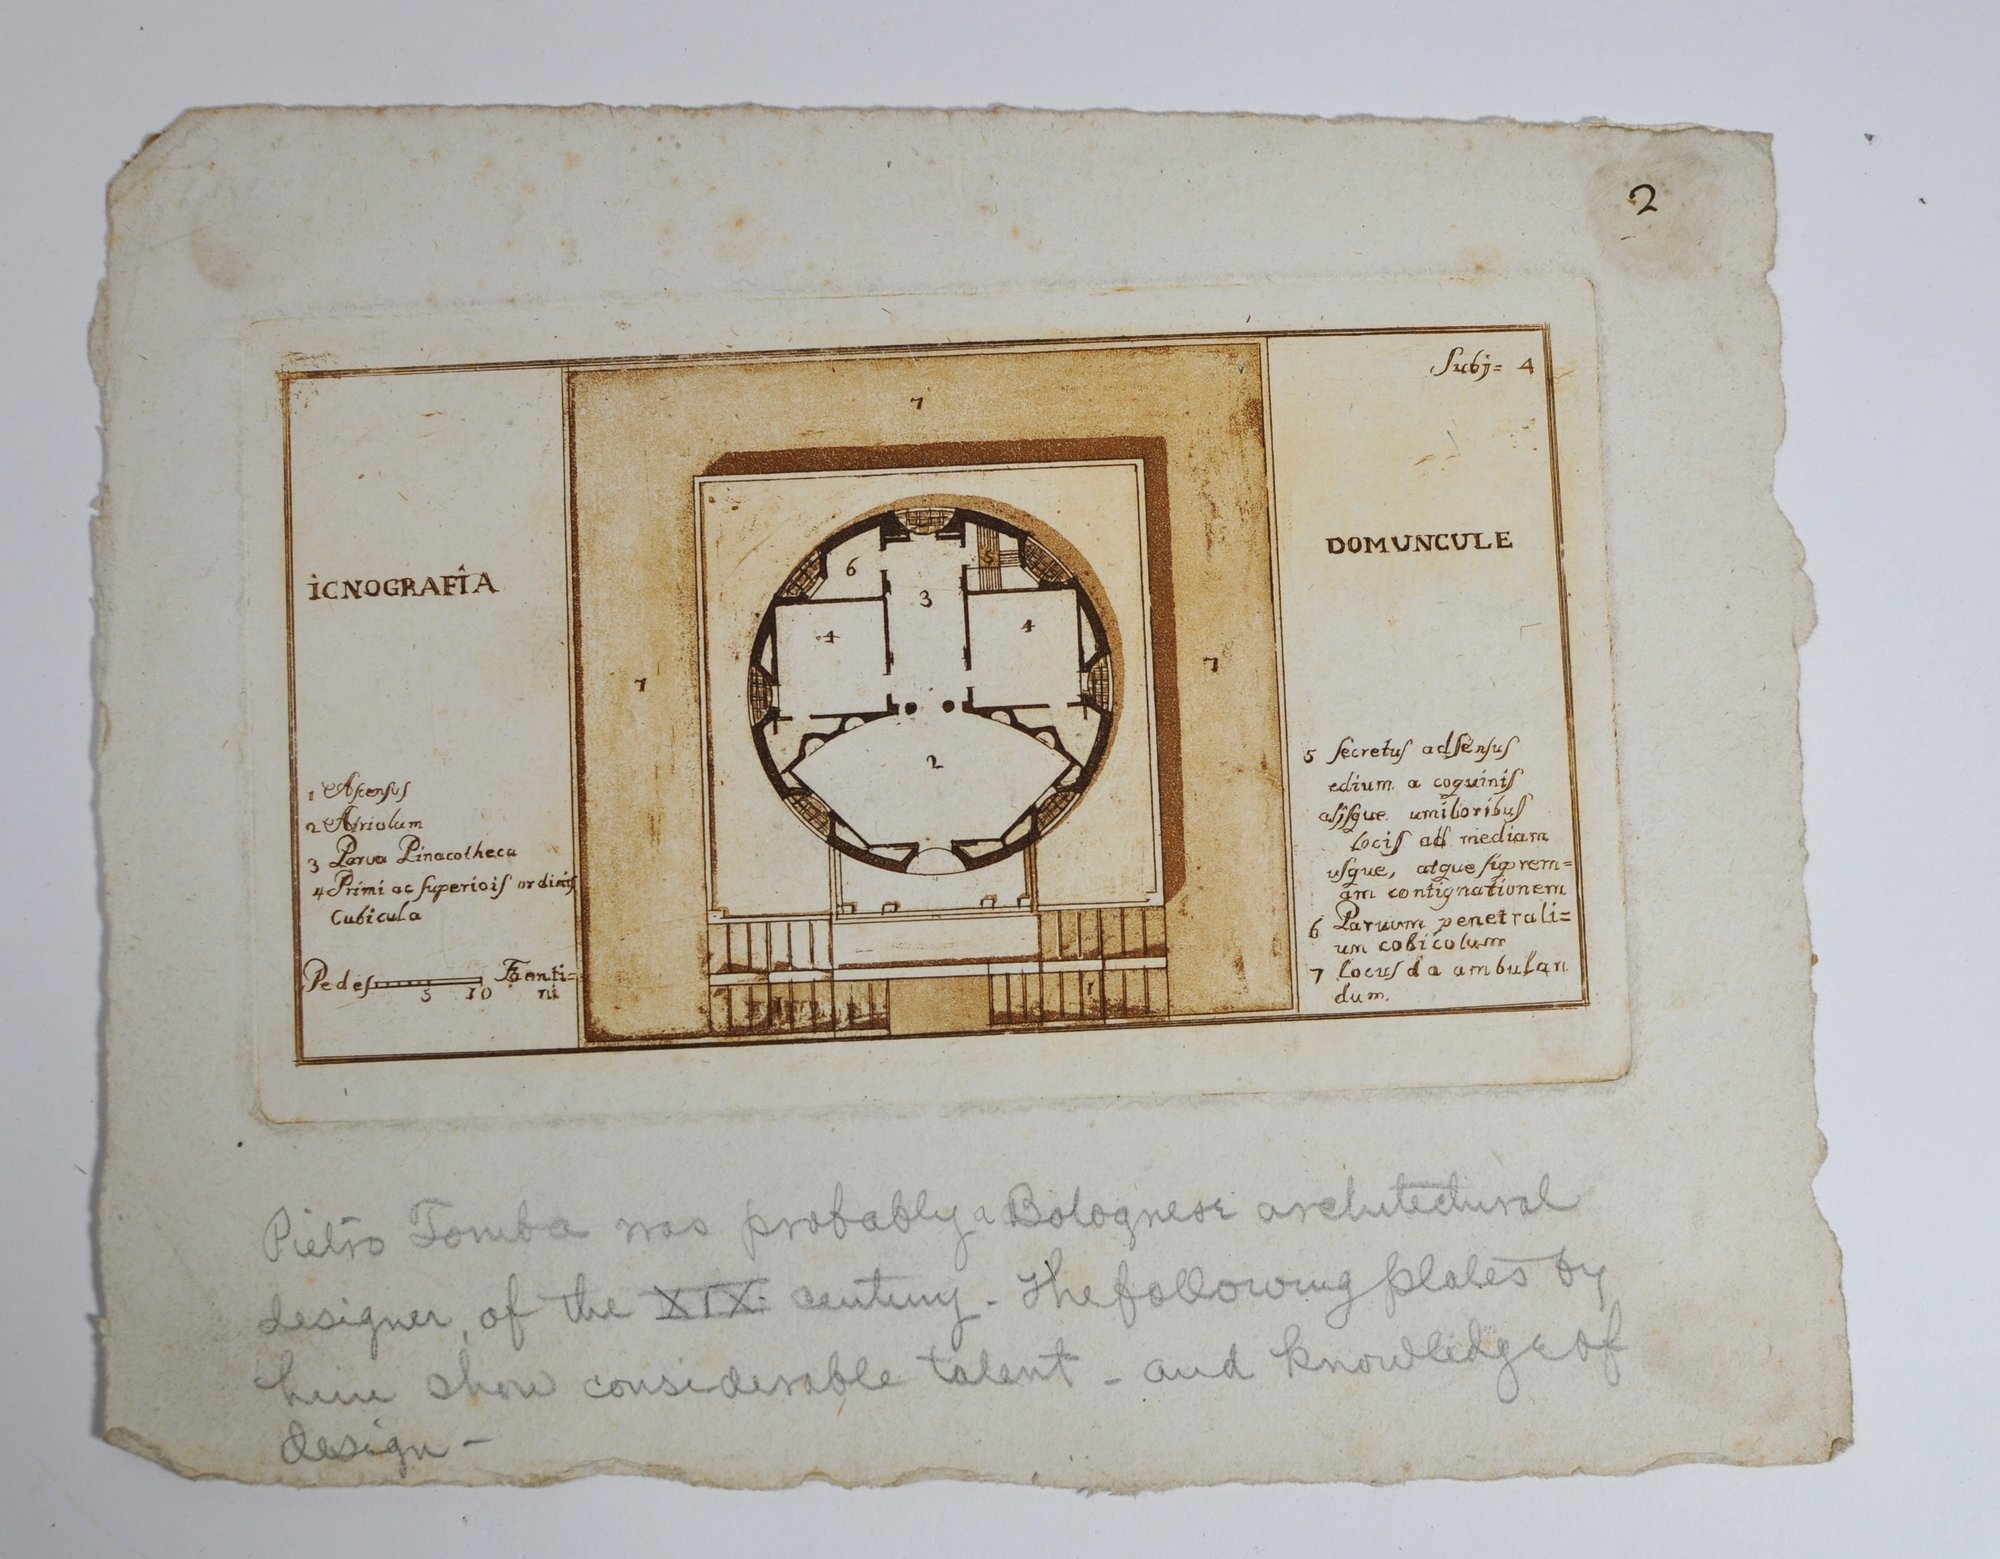 2
Subj= 4
7
ICNOGRAFIA
DOMUNCULE
6
5
3
4
4
7
7
2
1
1 Ascensus
2 Atriolum
3 Parva Pinacotheca
4 Primi ac superiois ordinis
Cubicula
Pedes 5 10 Faenti=
ni
5 Secretus adsensus
edium a coquinis
alisque umilioribus
locis ad mediam
usque, atque suprem=
am contignationem
6 Parvum penetrali=
um cobicolum
7 locus da ambulan
dum.
Pietro Tomba was probably a Bolognese architectural
designer, of the XIX. century - The following plates by
him show considerable talent - and knowledge of
design -